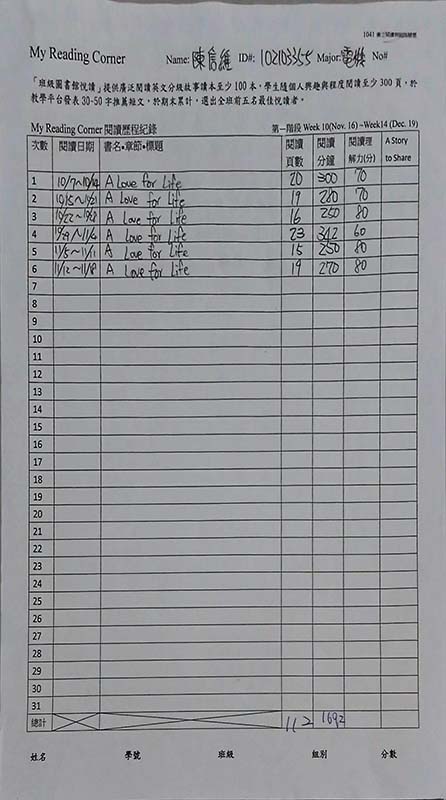 1041
My Reading Corner Name: 陳信維 ID#: 102103355 Major: 電機 No#
「班級圖書館悅讀」提供廣泛閱讀英文分級故事讀本至少100本，學生隨個人興趣與程度閱讀至少300頁，於
教學平台發表30-50字推薦短文，於期末累計，選出全班前五名最佳悅讀者。
My Reading Corner 閱讀歷程紀錄 第一階段 Week 10(Nov. 16) ~Week14 (Dec. 19)
次數 閱讀日期 書名·章節·標題 閱讀頁數 閱讀分鐘 閱讀理解力(分) A Story to Share
1 10/7~10/14 A Love for Life 20 300 70
2 10/15~10/21 A Love for Life 19 280 70
3 10/22~10/28 A Love for Life 16 250 80
4 10/29~11/4 A Love for Life 23 342 60
5 11/5~11/11 A Love for Life 15 250 80
6 11/12~11/18 A Love for Life 19 270 80
7
8
9
10
11
12
13
14
15
16
17
18
19
20
21
22
23
24
25
26
27
28
29
30
31
總計 112 1692
姓名 學號 班級 組別 分數